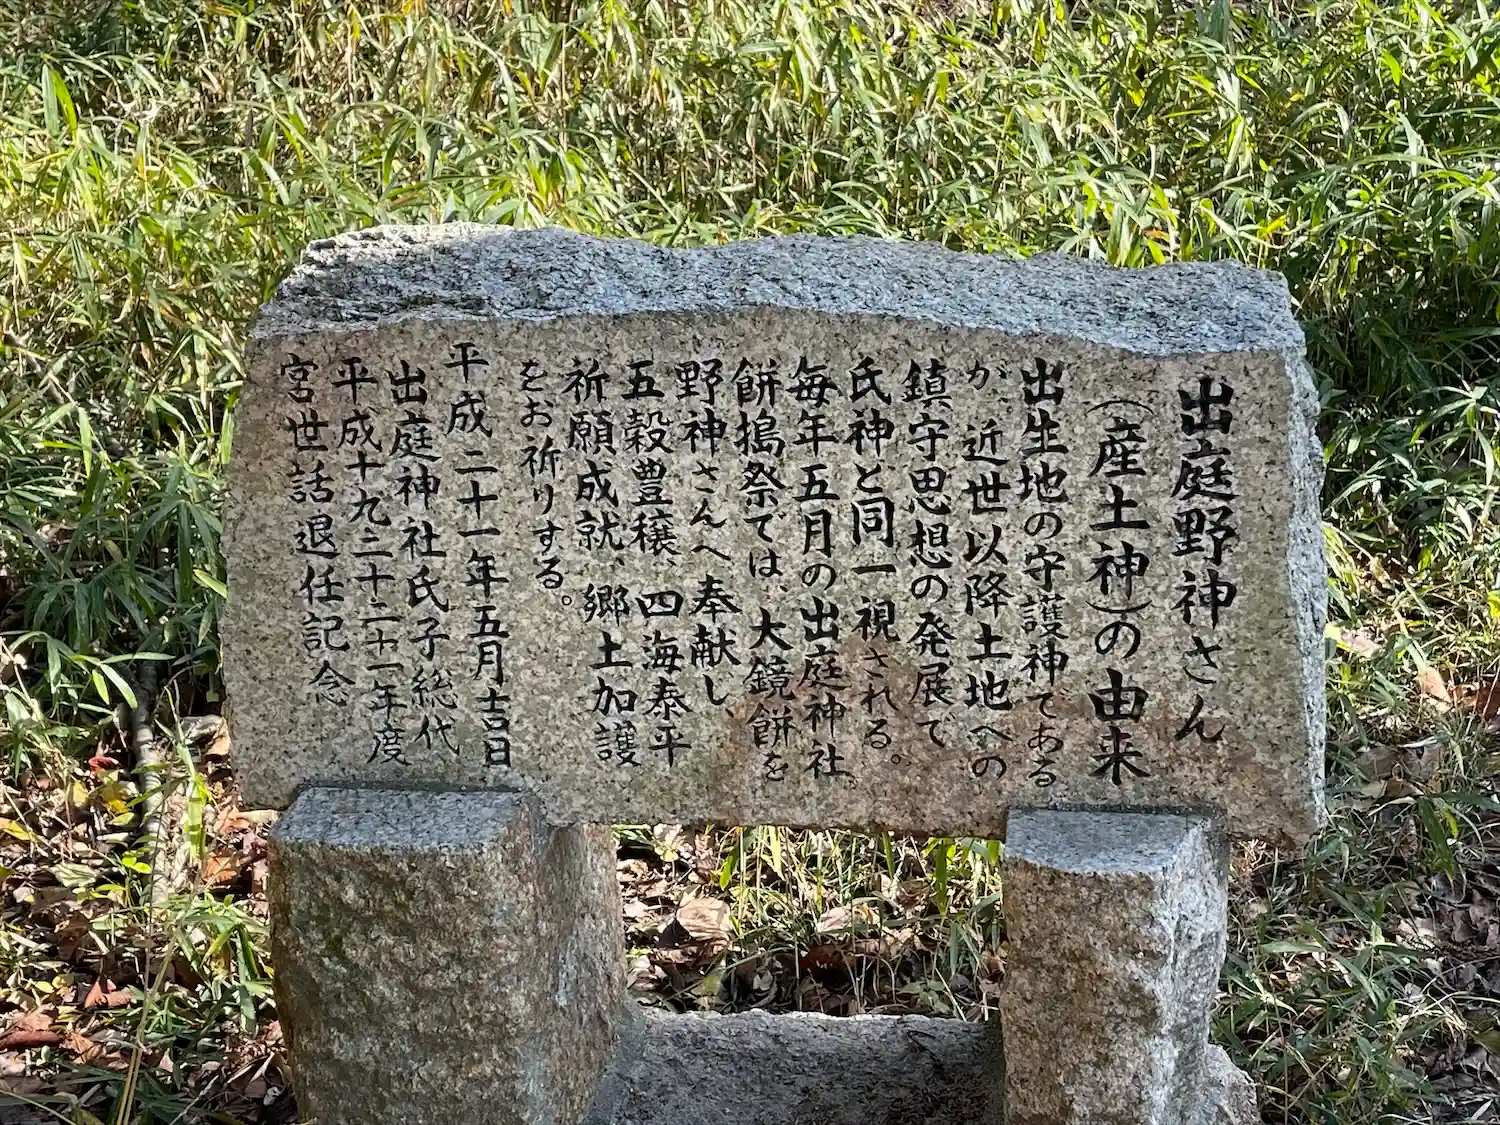 出庭野神さん
(産土神)の由来
出生地の守護神である
が、近世以降土地への
鎮守思想の発展で
氏神と同一視される。
毎年五月の出庭神社
餅搗祭では、大鏡餅を
野神さんへ奉献し、
五穀豊穣、四海泰平
祈願成就、郷土加護
をお祈りする。
平成二十一年五月吉日
出庭神社氏子総代
平成十九二十二十一年度
宮世話退任記念